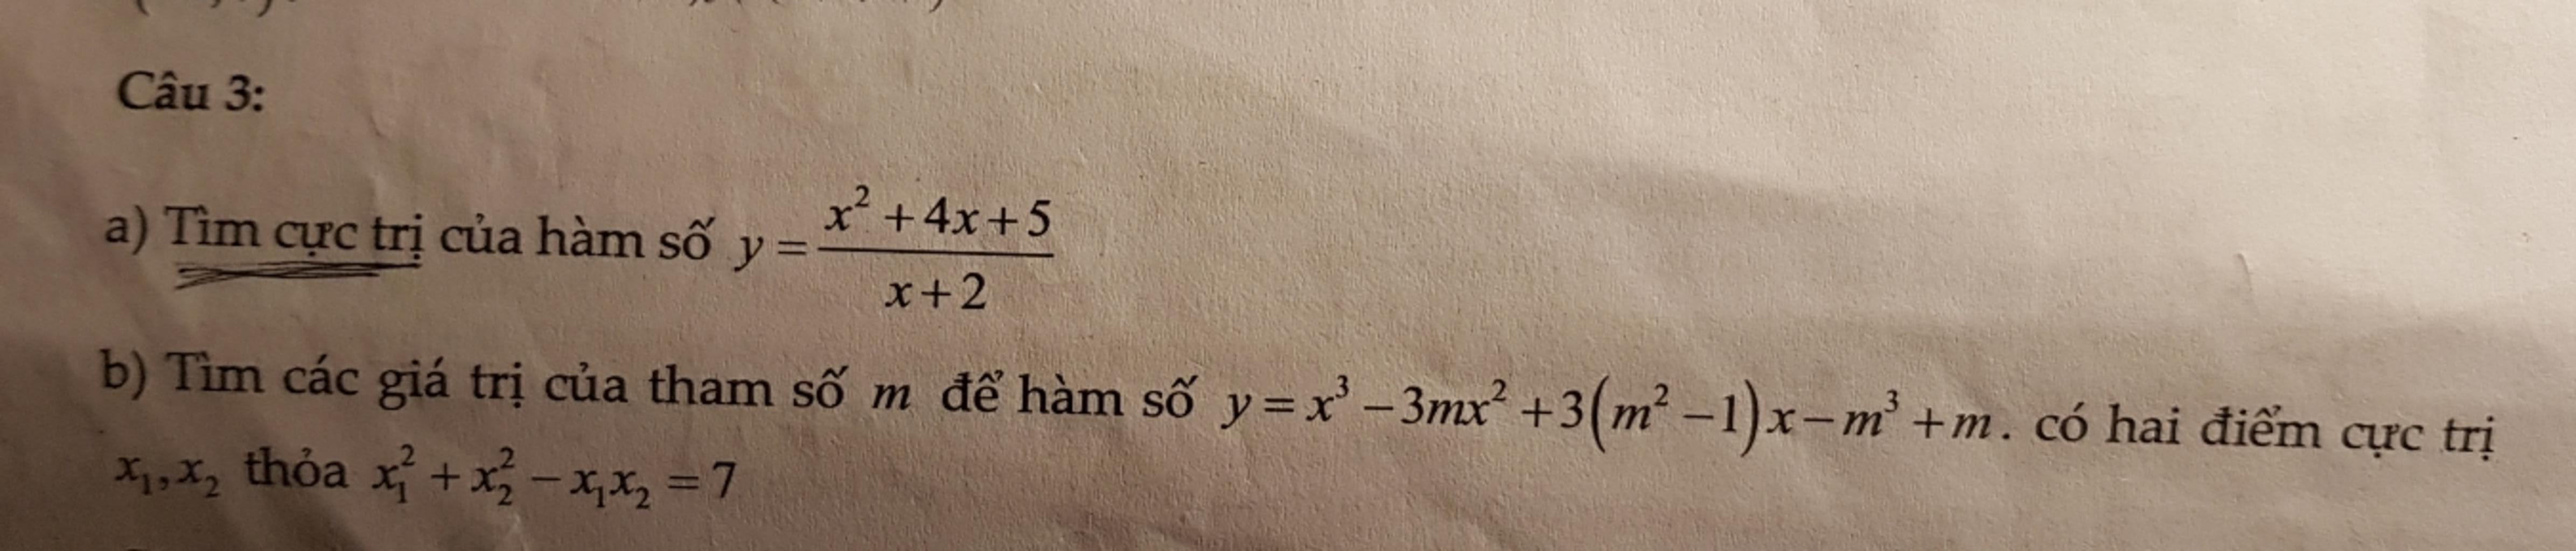 Câu 3:
a) Tìm cực trị của hàm số y = \frac{x^2+4x+5}{x+2}
b) Tìm các giá trị của tham số m để hàm số y = x^3 - 3mx^2 + 3(m^2 - 1)x - m^3 + m. có hai điểm cực trị
x_1, x_2 thỏa x_1^2 + x_2^2 - x_1x_2 = 7